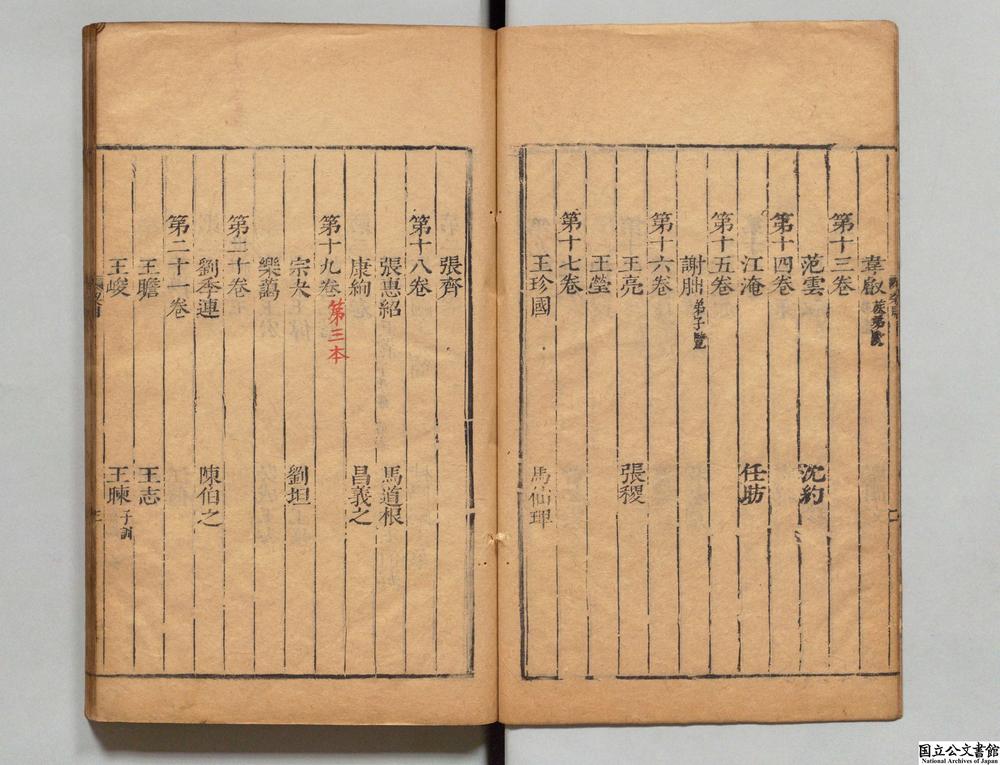 韋叡 族弟愛
第十三卷
范雲 沈約
第十四卷
江淹 任昉
第十五卷
謝朏 弟子覽
第十六卷
王亮 張稷
王瑩
第十七卷
王珍國 馬仙琕
張齊
第十八卷
張惠紹 馬道根
康絢 昌義之
第十九卷 第三本
宗夬 劉坦
樂藹
第二十卷
劉季連 陳伯之
第二十一卷
王瞻 王志
王峻 王暕 子訓
国立公文書館
National Archives of Japan